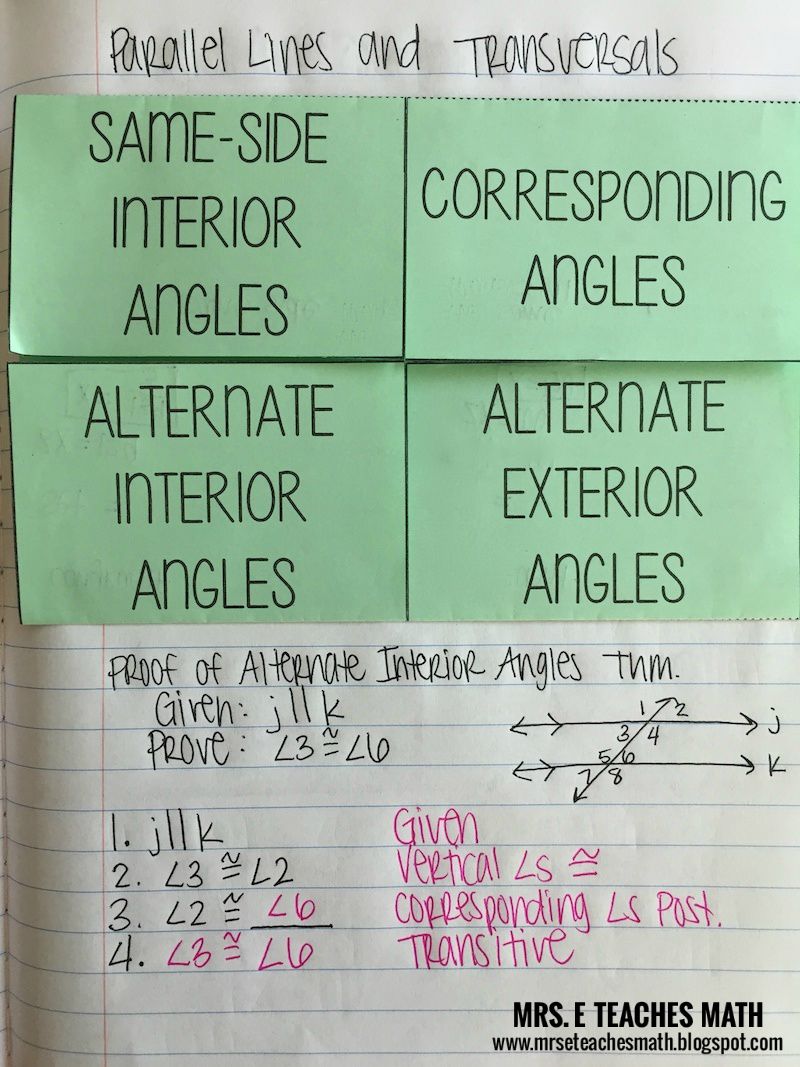 Parallel Lines and Transversals
SAME-SIDE
INTERIOR
ANGLES
CORRESPONDING
ANGLES
ALTERNATE
INTERIOR
ANGLES
ALTERNATE
EXTERIOR
ANGLES
Proof of Alternate Interior Angles Thm.
Given: j || k
Prove: ∠3 ≅ ∠6
1 2
3 4
j
5 6
7 8
k
1. j || k Given
2. ∠3 ≅ ∠2 Vertical ∠s ≅
3. ∠2 ≅ ∠6 Corresponding ∠s Post.
4. ∠3 ≅ ∠6 Transitive
MRS. E TEACHES MATH
www.mrseteachesmath.blogspot.com